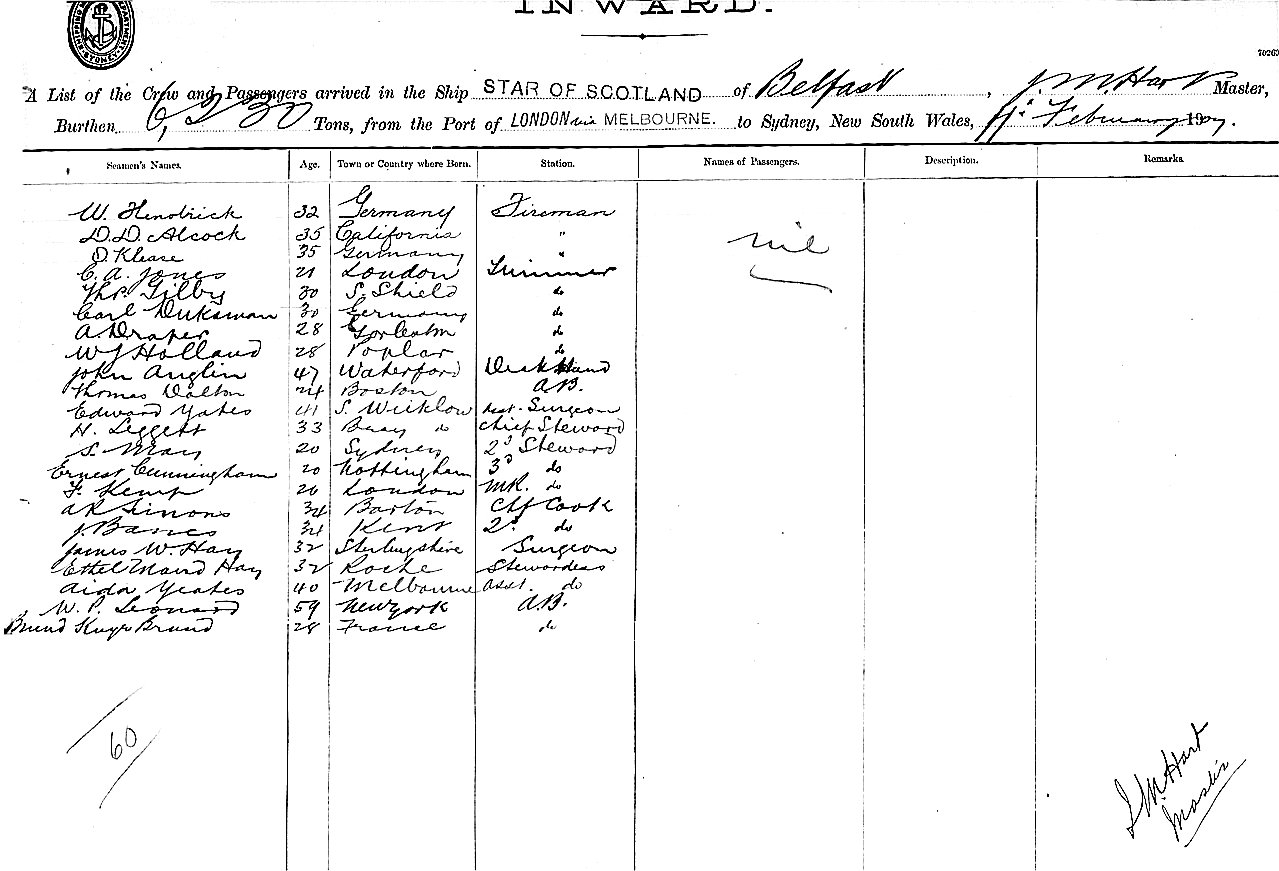 INWARD.
SYDNEY
70263
A List of the Crew and Passengers arrived in the Ship STAR OF SCOTLAND of Belfast, J. M. Hart Master,
Burthen 6,230 Tons, from the Port of LONDON via MELBOURNE. to Sydney, New South Wales, February 190
Seamen's Names. Age. Town or Country where Born. Station. Names of Passengers. Description. Remarks.
W. Hendrick 32 Germany Fireman
D. D. Alcock 35 California "
O. Klease 35 Germany " nil
C. A. Jones 21 London Trimmer
Thos. Gilby 30 S. Shield do
Carl Duksman 30 Germany do
A. Draper 28 Gorleston do
W J Holland 28 Poplar do
John Anglin 47 Waterford Deck Hand
Thomas Dalton 24 Boston A.B.
Edward Yates 41 S. Wicklow Asst. Surgeon
H. Leggett 33 do Chief Steward
S. May 20 Sydney 2d Steward
Ernest Cunningham 20 Nottingham 3d do
F. Kemp 26 London do
A R Simons 34 Barton Chf Cook
J. Banes 34 Kent 2d do
James W. Hay 32 Sterlingshire Surgeon
Ethel Maud Hay 32 Roche Stewardess
Aida Yeates 40 Melbourne asst. do
W. P. Leonard 59 New york A.B.
28 France do
60
J M Hart
Master